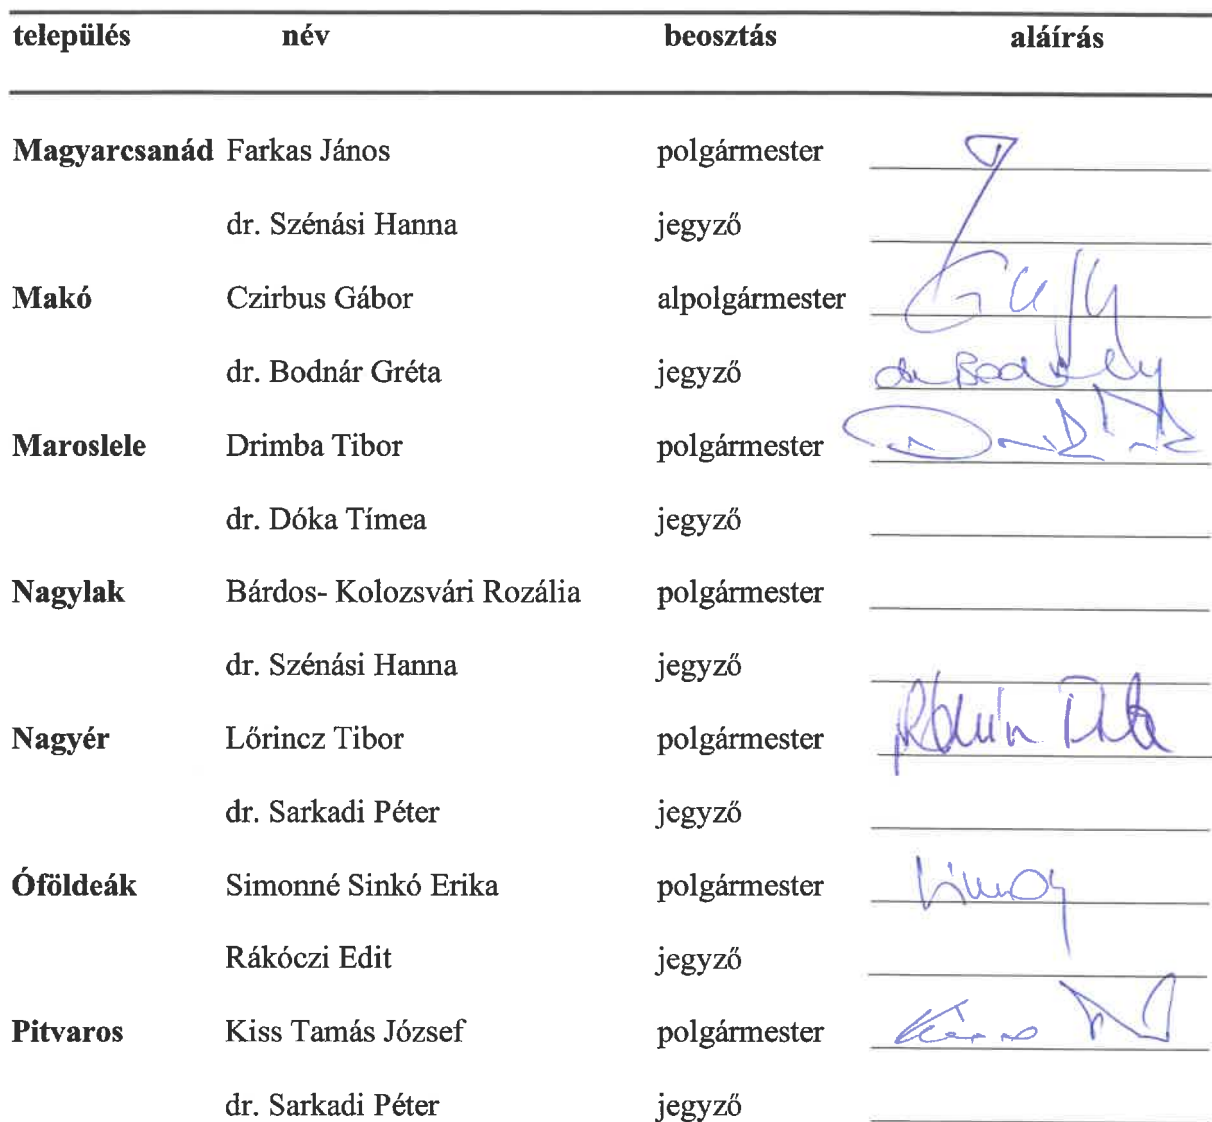 település név beosztás aláírás
Magyarcsanád Farkas János polgármester
dr. Szénási Hanna jegyző
Makó Czirbus Gábor alpolgármester
dr. Bodnár Gréta jegyző
Maroslele Drimba Tibor polgármester
dr. Dóka Tímea jegyző
Nagylak Bárdos- Kolozsvári Rozália polgármester
dr. Szénási Hanna jegyző
Nagyér Lőrincz Tibor polgármester
dr. Sarkadi Péter jegyző
Óföldeák Simonné Sinkó Erika polgármester
Rákóczi Edit jegyző
Pitvaros Kiss Tamás József polgármester
dr. Sarkadi Péter jegyző